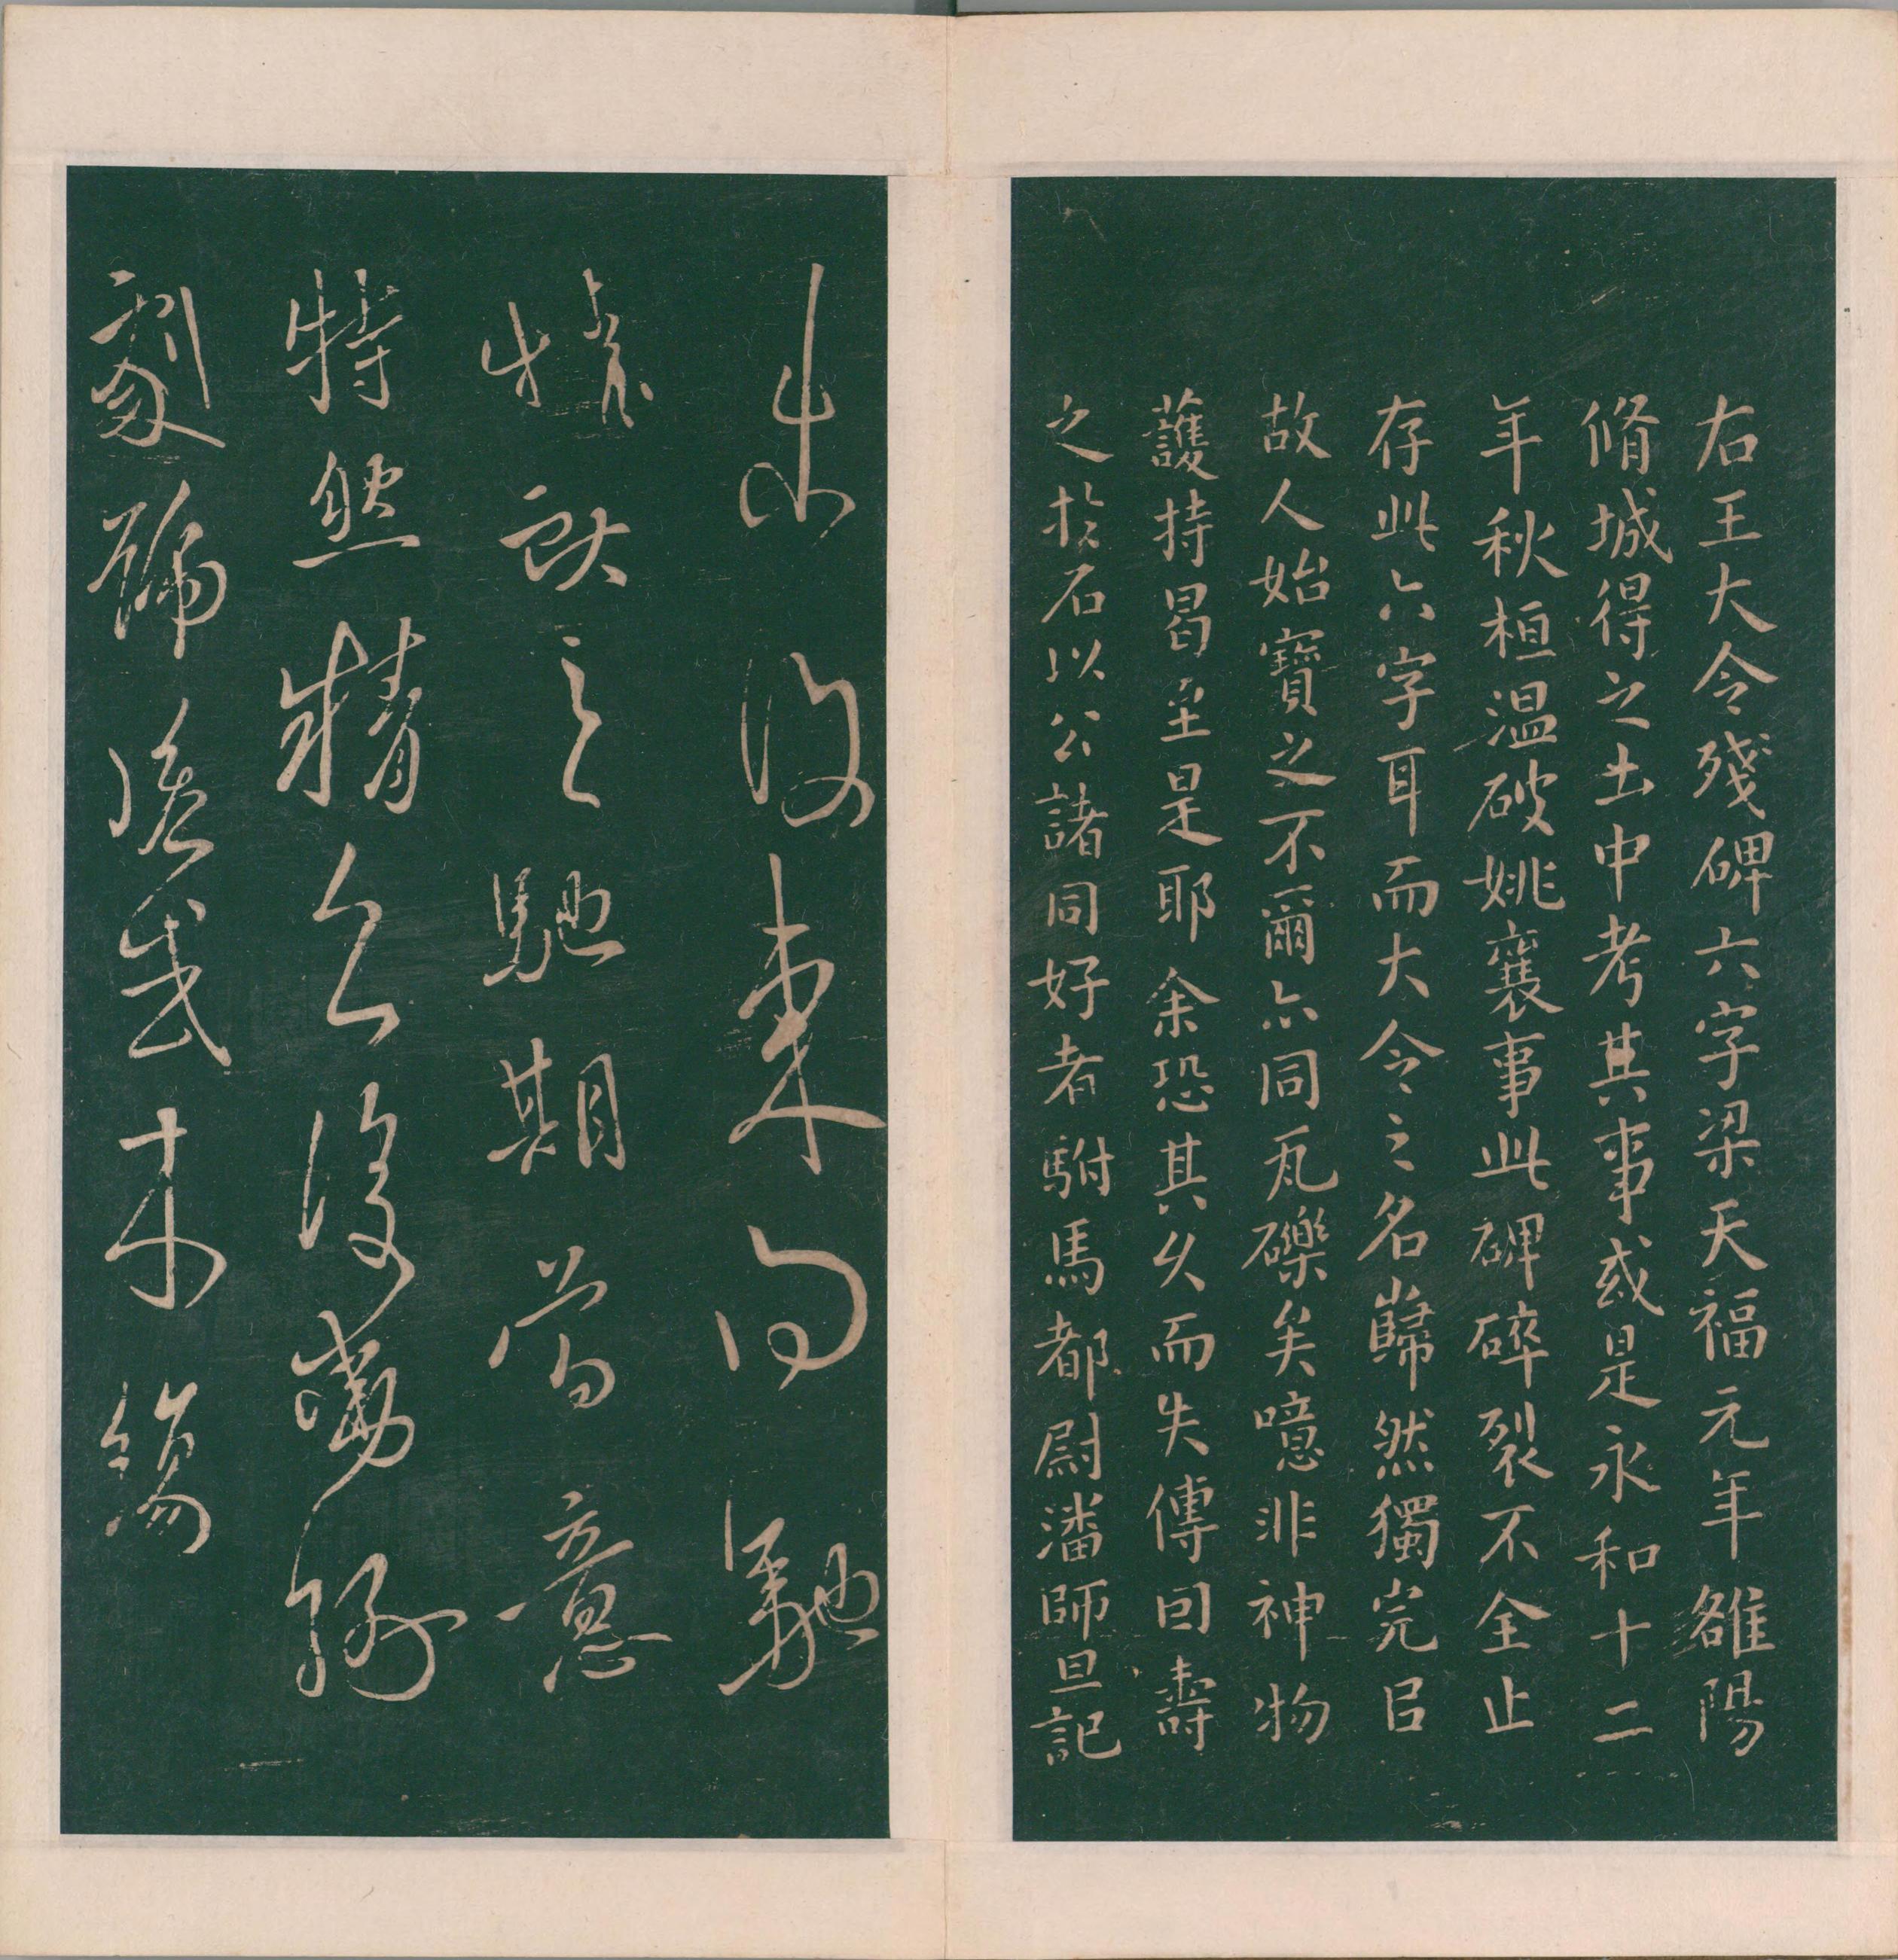 右王大令殘碑六字梁天福元年雒陽
脩城得之土中考其事或是永和十二
年秋桓温破姚襄事此碑碎裂不全止
存此六字耳而大令之名巋然獨完㠯
故人始寶之不爾亦同瓦礫矣噫非神物
護持曷至是耶余恐其久而失傳因壽
之於石以公諸同好者駙馬都尉潘師旦記
復東向馳
情獻之馳期當意
特然精復
未